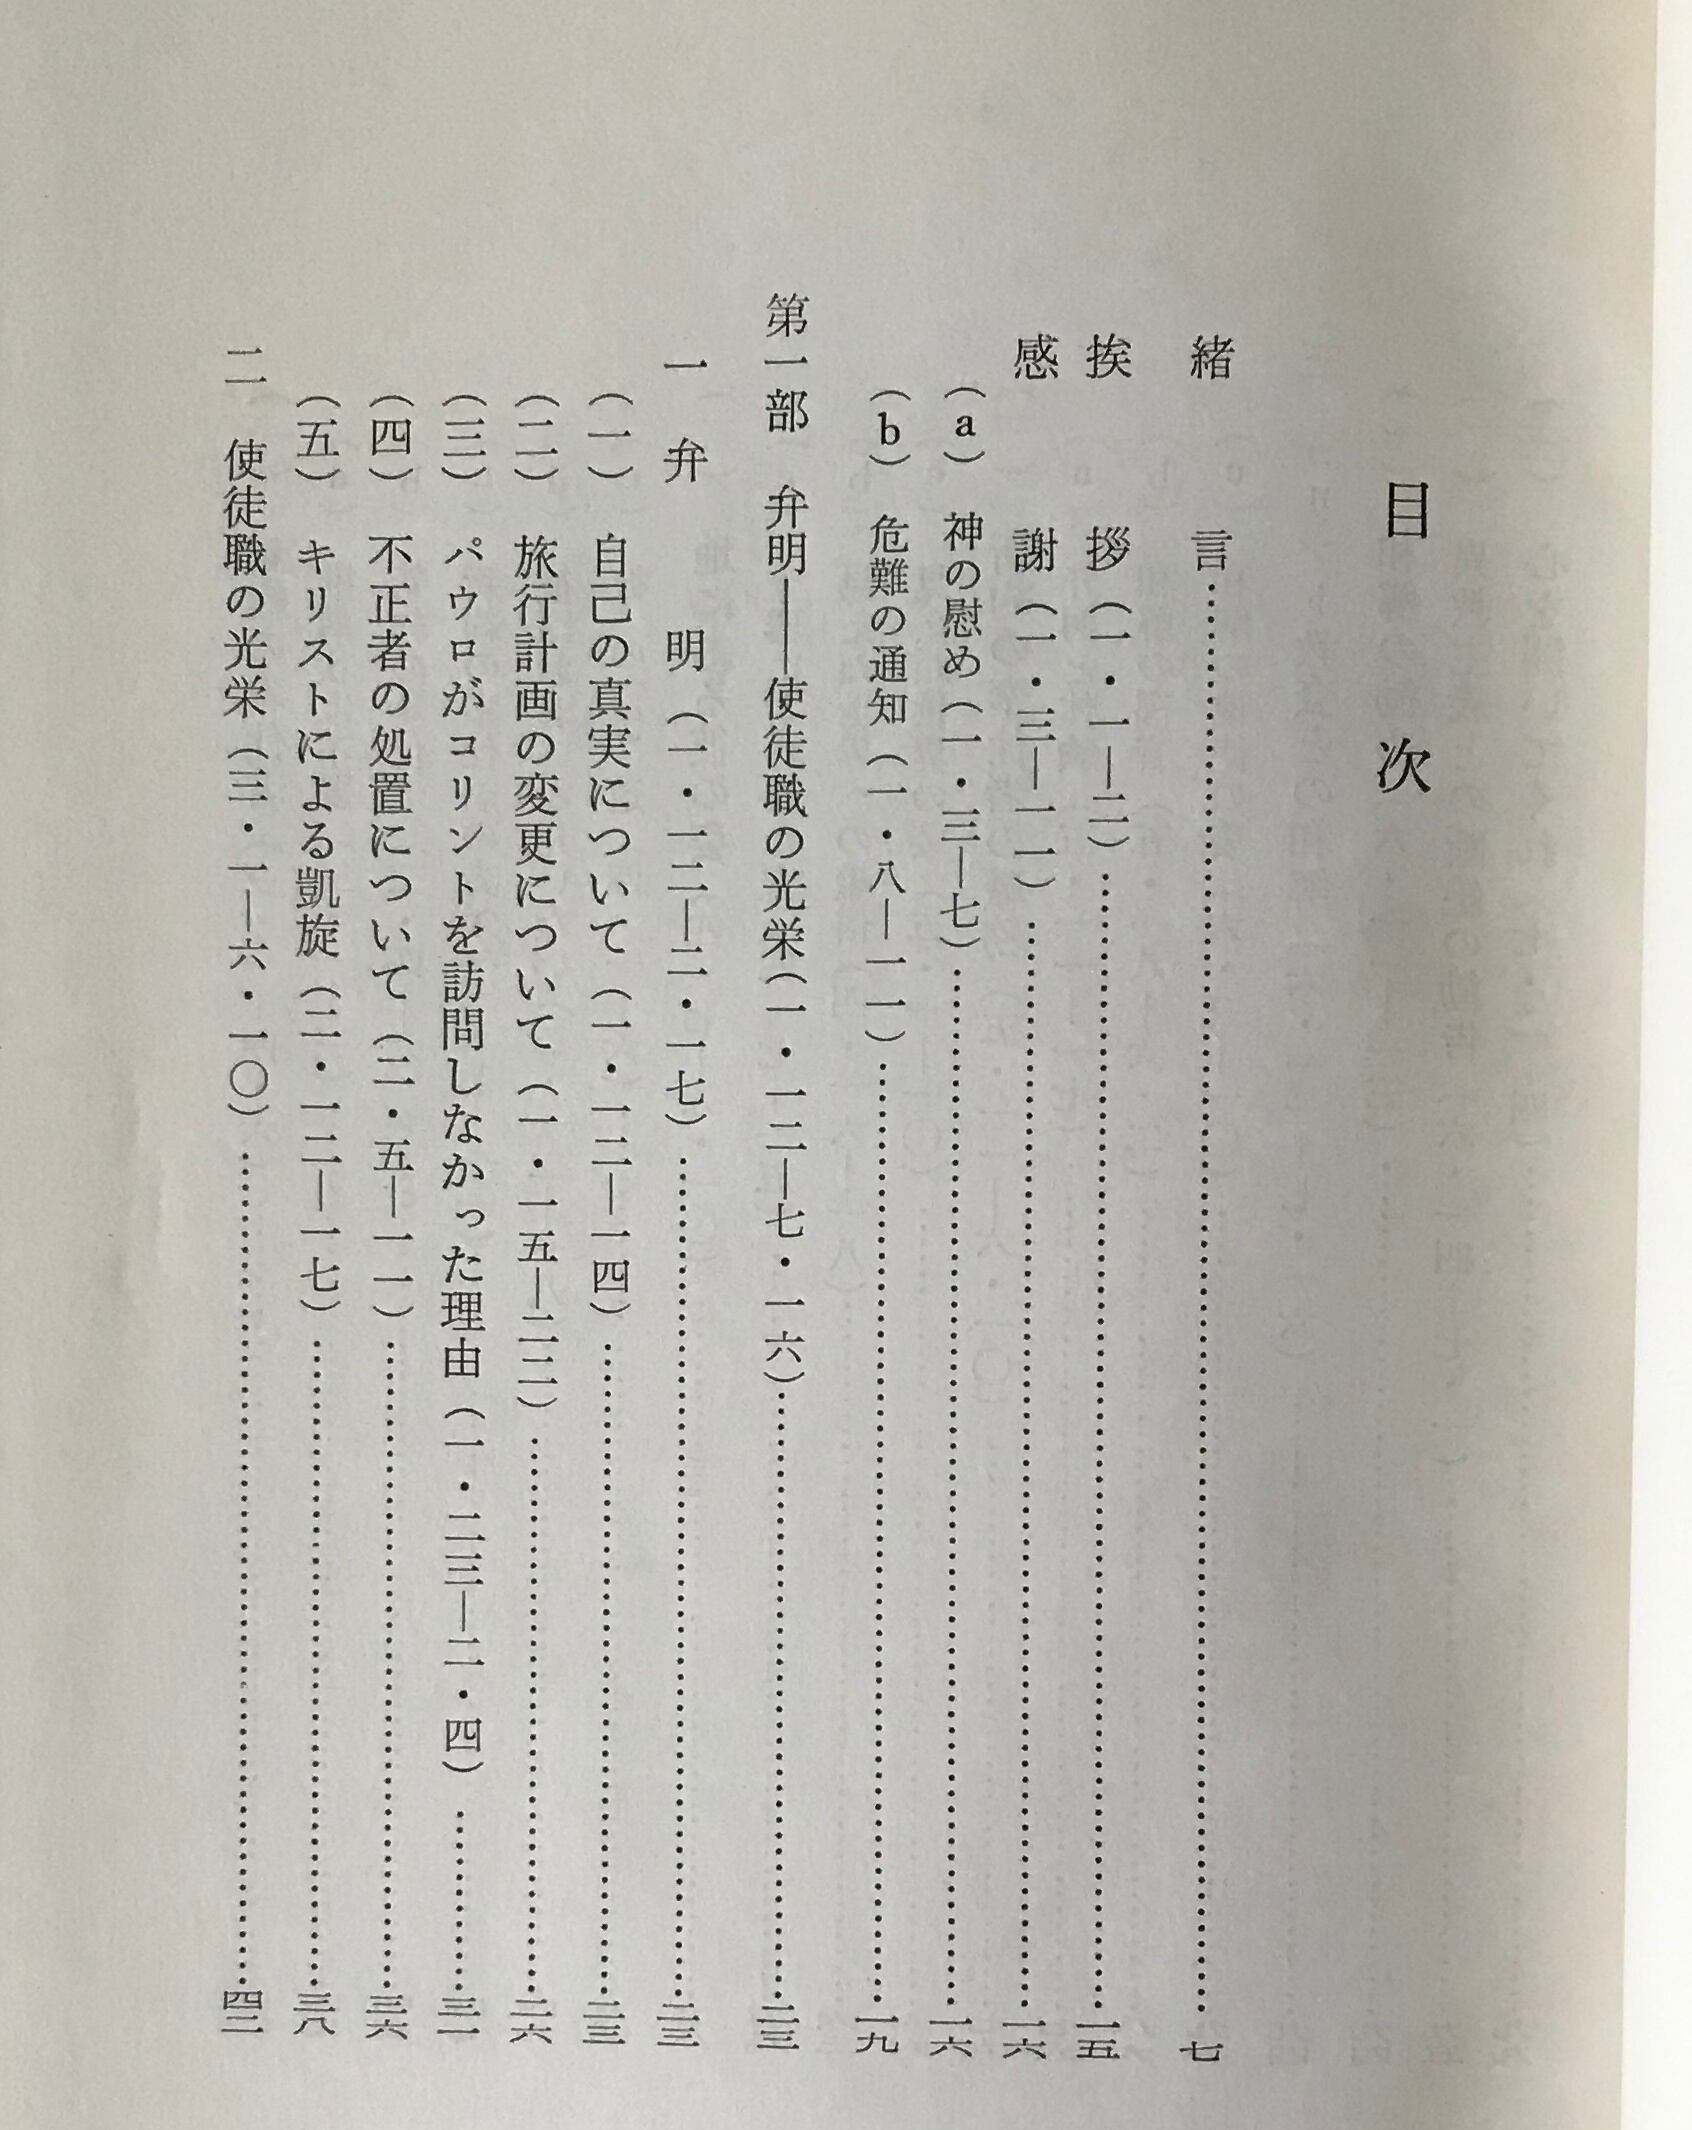 目次
緒言……七
挨拶（一・一―二）……一五
感謝（一・三―一一）……一六
（a）神の慰め（一・三―七）……一六
（b）危難の通知（一・八―一一）……一九
第一部 弁明――使徒職の光栄（一・一二―七・一六）……二三
一 弁明（一・一二―二・一七）……二三
（一）自己の真実について（一・一二―一四）……二三
（二）旅行計画の変更について（一・一五―二二）……二六
（三）パウロがコリントを訪問しなかった理由（一・二三―二・四）……三一
（四）不正者の処置について（二・五―一一）……三六
（五）キリストによる凱旋（二・一二―一七）……三八
二 使徒職の光栄（三・一―六・一〇）……四二